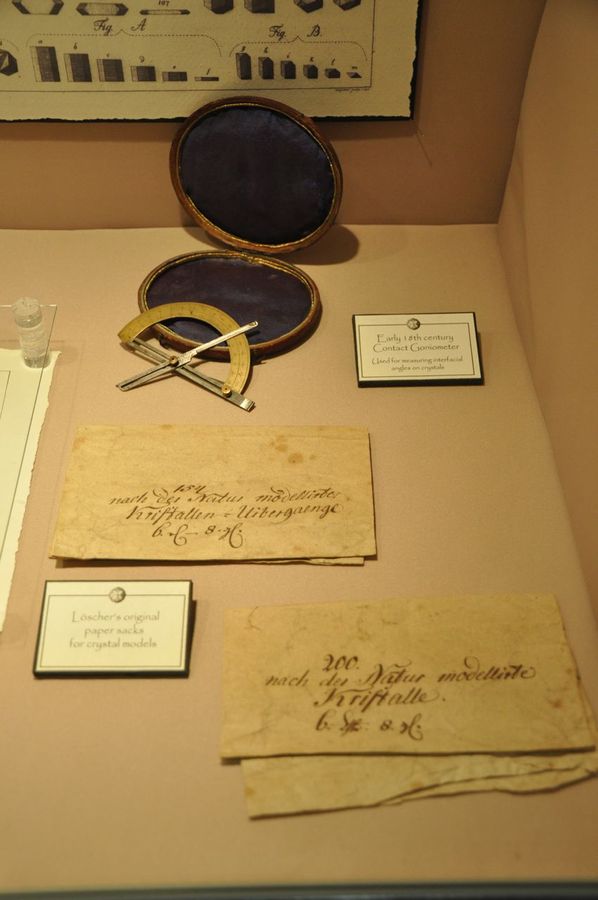 107
Fig. A
Fig. B.
a b c d e f
g h i k l m
Early 18th century
Contact Goniometer
Used for measuring interfacial
angles on crystals
154
nach der Natur modellirter
Kriſtallen-Uibergaenge
Löscher's original
paper sacks
for crystal models
200.
nach der Natur modellirte
Kriſtalle.